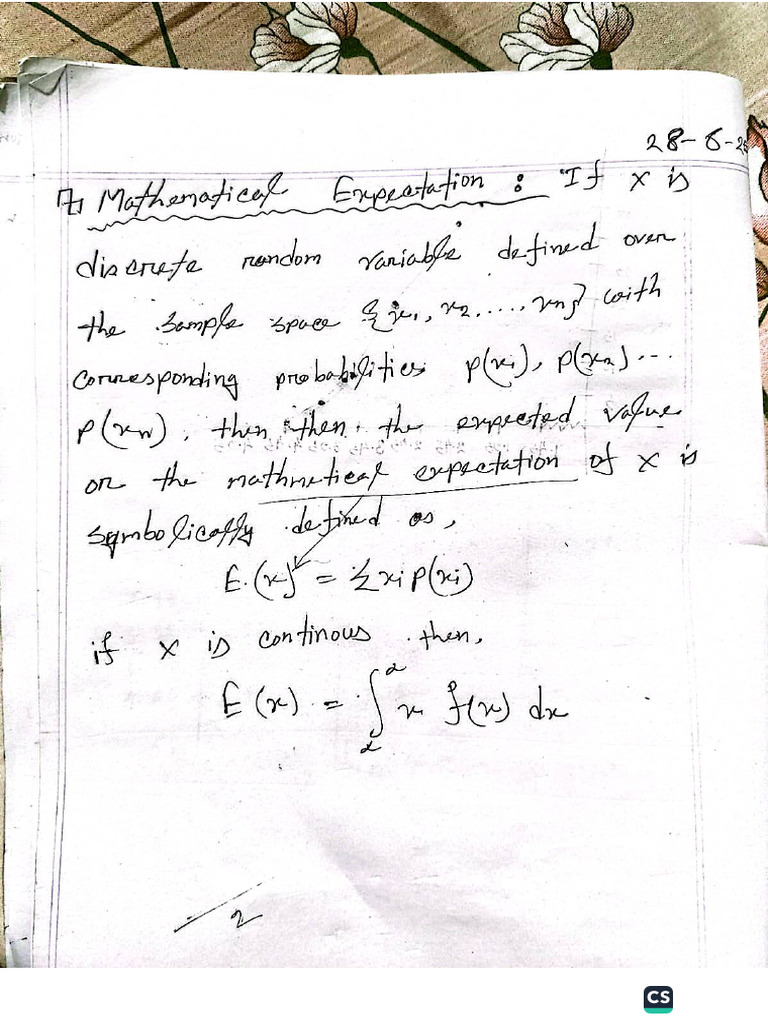 28-6-25
7) Mathematical Expectation : If x is
discrete random variable defined over
the sample space {x₁, x₂, ...., xn} with
corresponding probabilities p(x₁), p(x₂) ...
p(xn), then then the expected value
or the mathmetical expectation of x is
symbolically defined as,
E.(x) = Σxi p(xi)
if x is continous then,
E(x) = ∫ x f(x) dx
2
CS